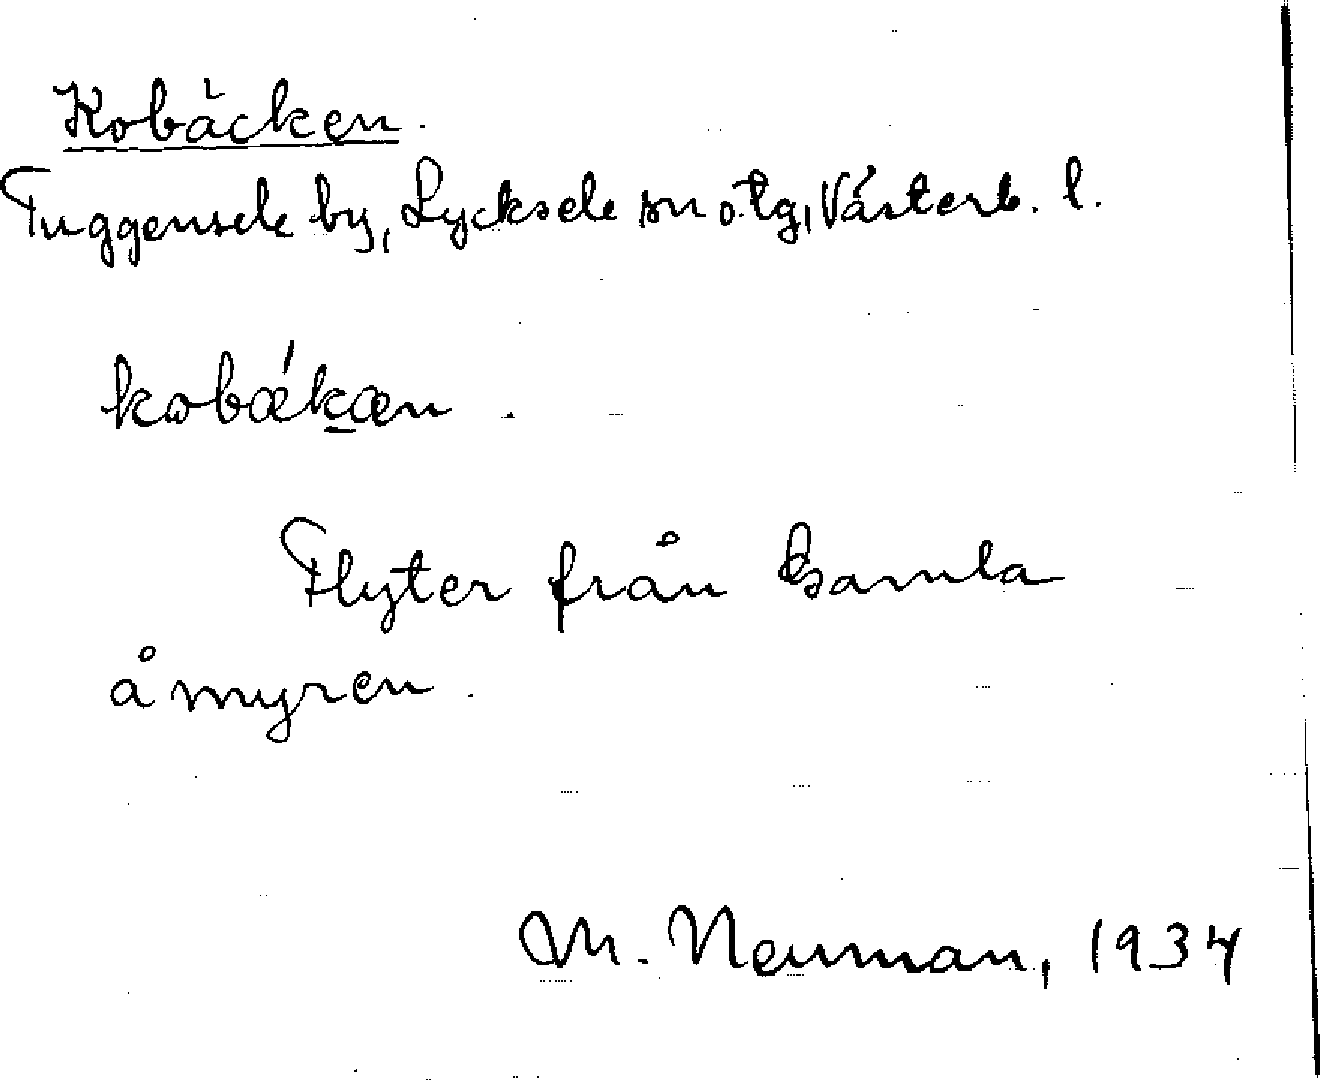 Kobäcken.
Tuggensele by, Lycksele sn o. tg, Västerb. l.
kobǽkæn.
Flyter från Gamla
åmyren.
M. Neuman, 1934